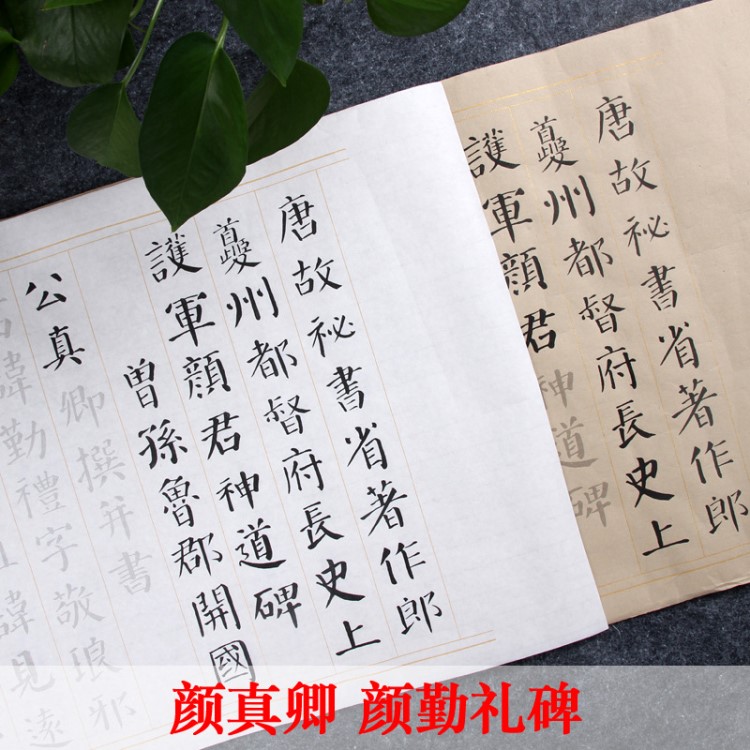 唐故祕書省著作郎
夔州都督府長史上
護軍顏君神道碑
唐故祕書省著作郎
夔州都督府長史上
護軍顏君神道碑
曾孫魯郡開國
公真卿撰并書
諱勤禮字敬琅邪
諱見遠
颜真卿 颜勤礼碑